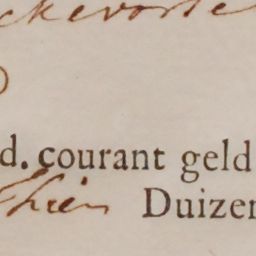 ckevorste
d. courant geld
Thien Duizen